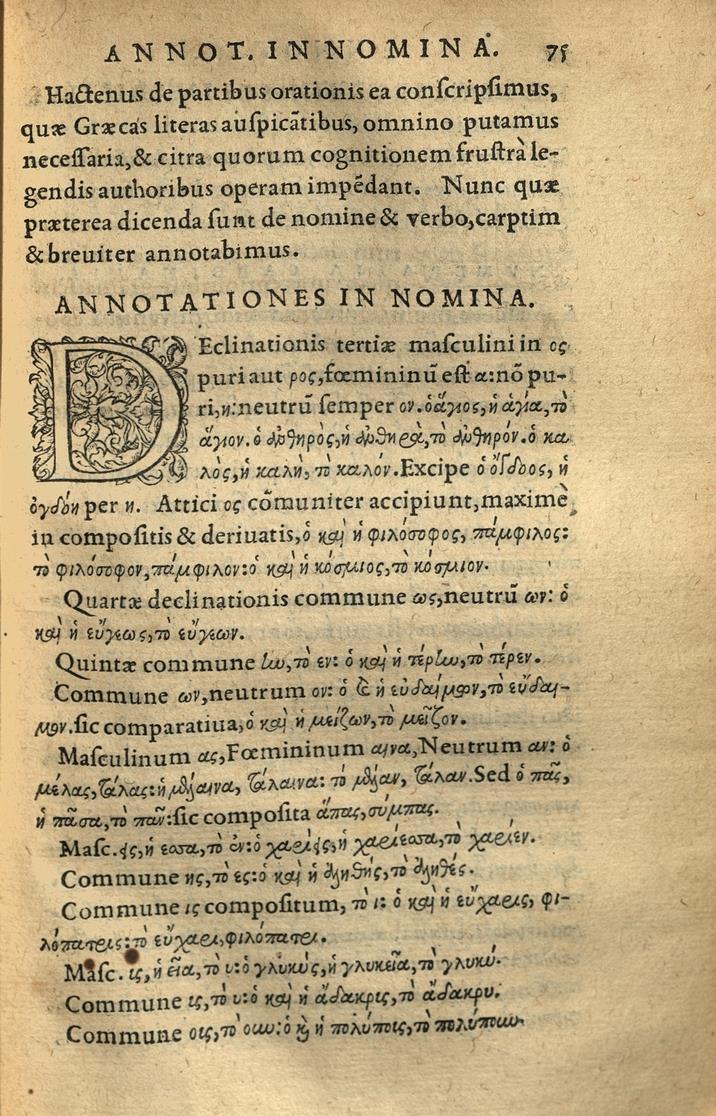 ANNOT. IN NOMINA. 75
Hactenus de partibus orationis ea conſcripſimus,
quæ Græcas literas auſpicãtibus, omnino putamus
neceſſaria, & citra quorum cognitionem fruſtrà le-
gendis authoribus operam impẽdant. Nunc quæ
præterea dicenda ſunt de nomine & verbo, carptim
& breuiter annotabimus.
ANNOTATIONES IN NOMINA.
DEclinationis tertiæ maſculini in ος
puri aut ρος, fœmininũ eſt α: nõ pu-
ri, η: neutrũ ſemper ον. ὁ ἅγιος, ἡ ἁγία, τὸ
ἅγιον. ὁ ἀνθηρὸς, ἡ ἀνθηρὰ, τὸ ἀνθηρόν. ὁ κα
λὸς, ἡ καλὴ, τὸ καλόν. Excipe ὁ ὄγδοος, ἡ
ὀγδόη per η. Attici ος cõmuniter accipiunt, maximè
in compoſitis & deriuatis, ὁ καὶ ἡ φιλόσοφος, πάμφιλος:
τὸ φιλόσοφον, πάμφιλον: ὁ καὶ ἡ κόσμιος, τὸ κόσμιον.
Quartæ declinationis commune ως, neutrũ ων: ὁ
καὶ ἡ εὔγεως, τὸ εὔγεων.
Quintæ commune ην, τὸ εν: ὁ καὶ ἡ τέρην, τὸ τέρεν.
Commune ων, neutrum ον: ὁ καὶ ἡ εὐδαίμων, τὸ εὔδαι-
μον. ſic comparatiua, ὁ καὶ ἡ μείζων, τὸ μεῖζον.
Maſculinum ας, Fœmininum αινα, Neutrum αν: ὁ
μέλας, τάλας: ἡ μέλαινα, τάλαινα: τὸ μέλαν, τάλαν. Sed ὁ πᾶς,
ἡ πᾶσα, τὸ πᾶν: ſic compoſita ἅπας, σύμπας.
Maſc. εις, ἡ εσσα, τὸ εν: ὁ χαρίεις, ἡ χαρίεσσα, τὸ χαρίεν.
Commune ης, τὸ ες: ὁ καὶ ἡ ἀληθής, τὸ ἀληθές.
Commune ις compoſitum, τὸ ι: ὁ καὶ ἡ εὔχαρις, φι-
λόπατρις: τὸ εὔχαρι, φιλόπατρι.
Maſc. υς, ἡ εῖα, τὸ υ: ὁ γλυκὺς, ἡ γλυκεῖα, τὸ γλυκύ.
Commune ις, τὸ υ: ὁ καὶ ἡ ἄδακρις, τὸ ἄδακρυ.
Commune οις, τὸ ουν: ὁ καὶ ἡ πολύποις, τὸ πολύπουν.